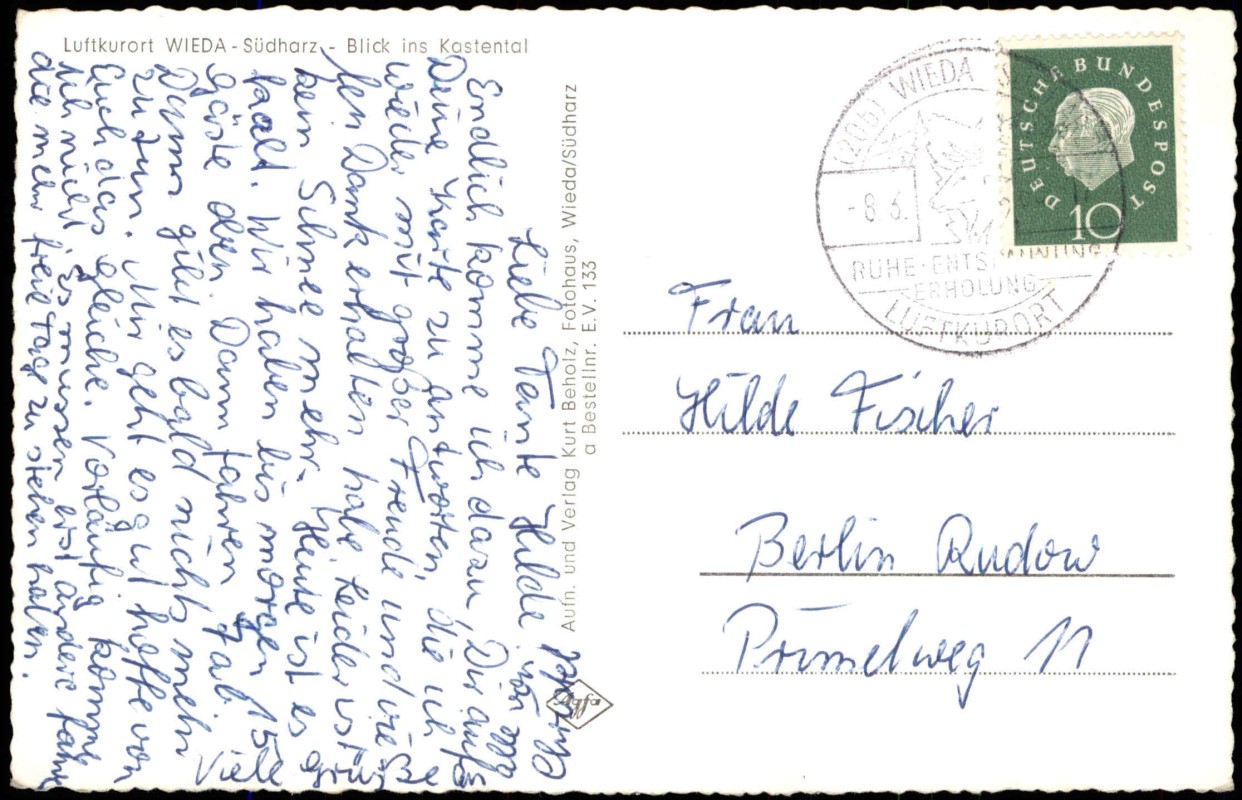 Luftkurort WIEDA - Südharz - Blick ins Kastental
Liebe Tante Hilde
Endlich komme ich dazu, Dir auf
Deine Karte zu antworten, die ich
wieder mit großer Freude und
len Dank erhalten habe. Leider ist
kein Schnee mehr. Heute ist es
kalt. Wir haben bis morgen 15
Gäste oben. Dann fahren ab.
Dann gibt es bald nichts mehr
zu tun. Mir geht es gut hoffe von
Euch das gleiche. Vorläufig komme
ich nicht. Es müssen erst andere fahren
die mehr freie Tage zu stehen haben.
Viele Grüße
von
Aufn. und Verlag Kurt Beholz, Fotohaus, Wieda/Südharz
a Bestellnr. E.V. 133
Agfa
(20b) WIEDA
-8.6.
RUHE-ENTSPANNUNG
ERHOLUNG
LUFTKURORT
DEUTSCHE BUNDESPOST
10
Frau
Hilde Fischer
Berlin Rudow
Primelweg 11